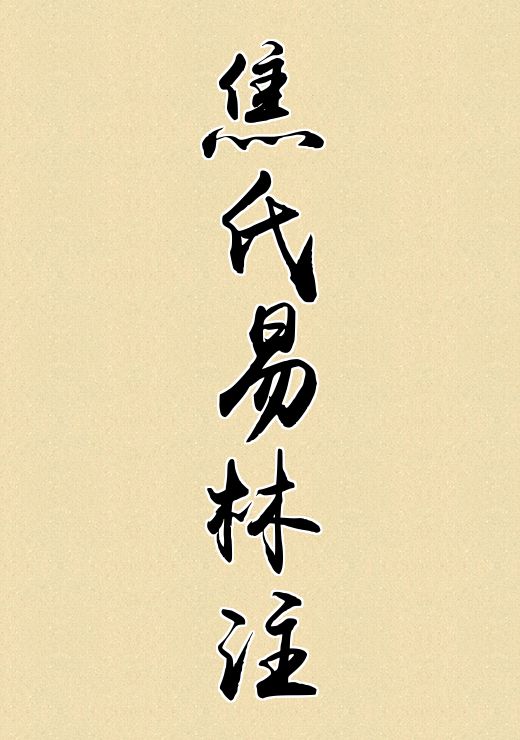 焦氏易林注